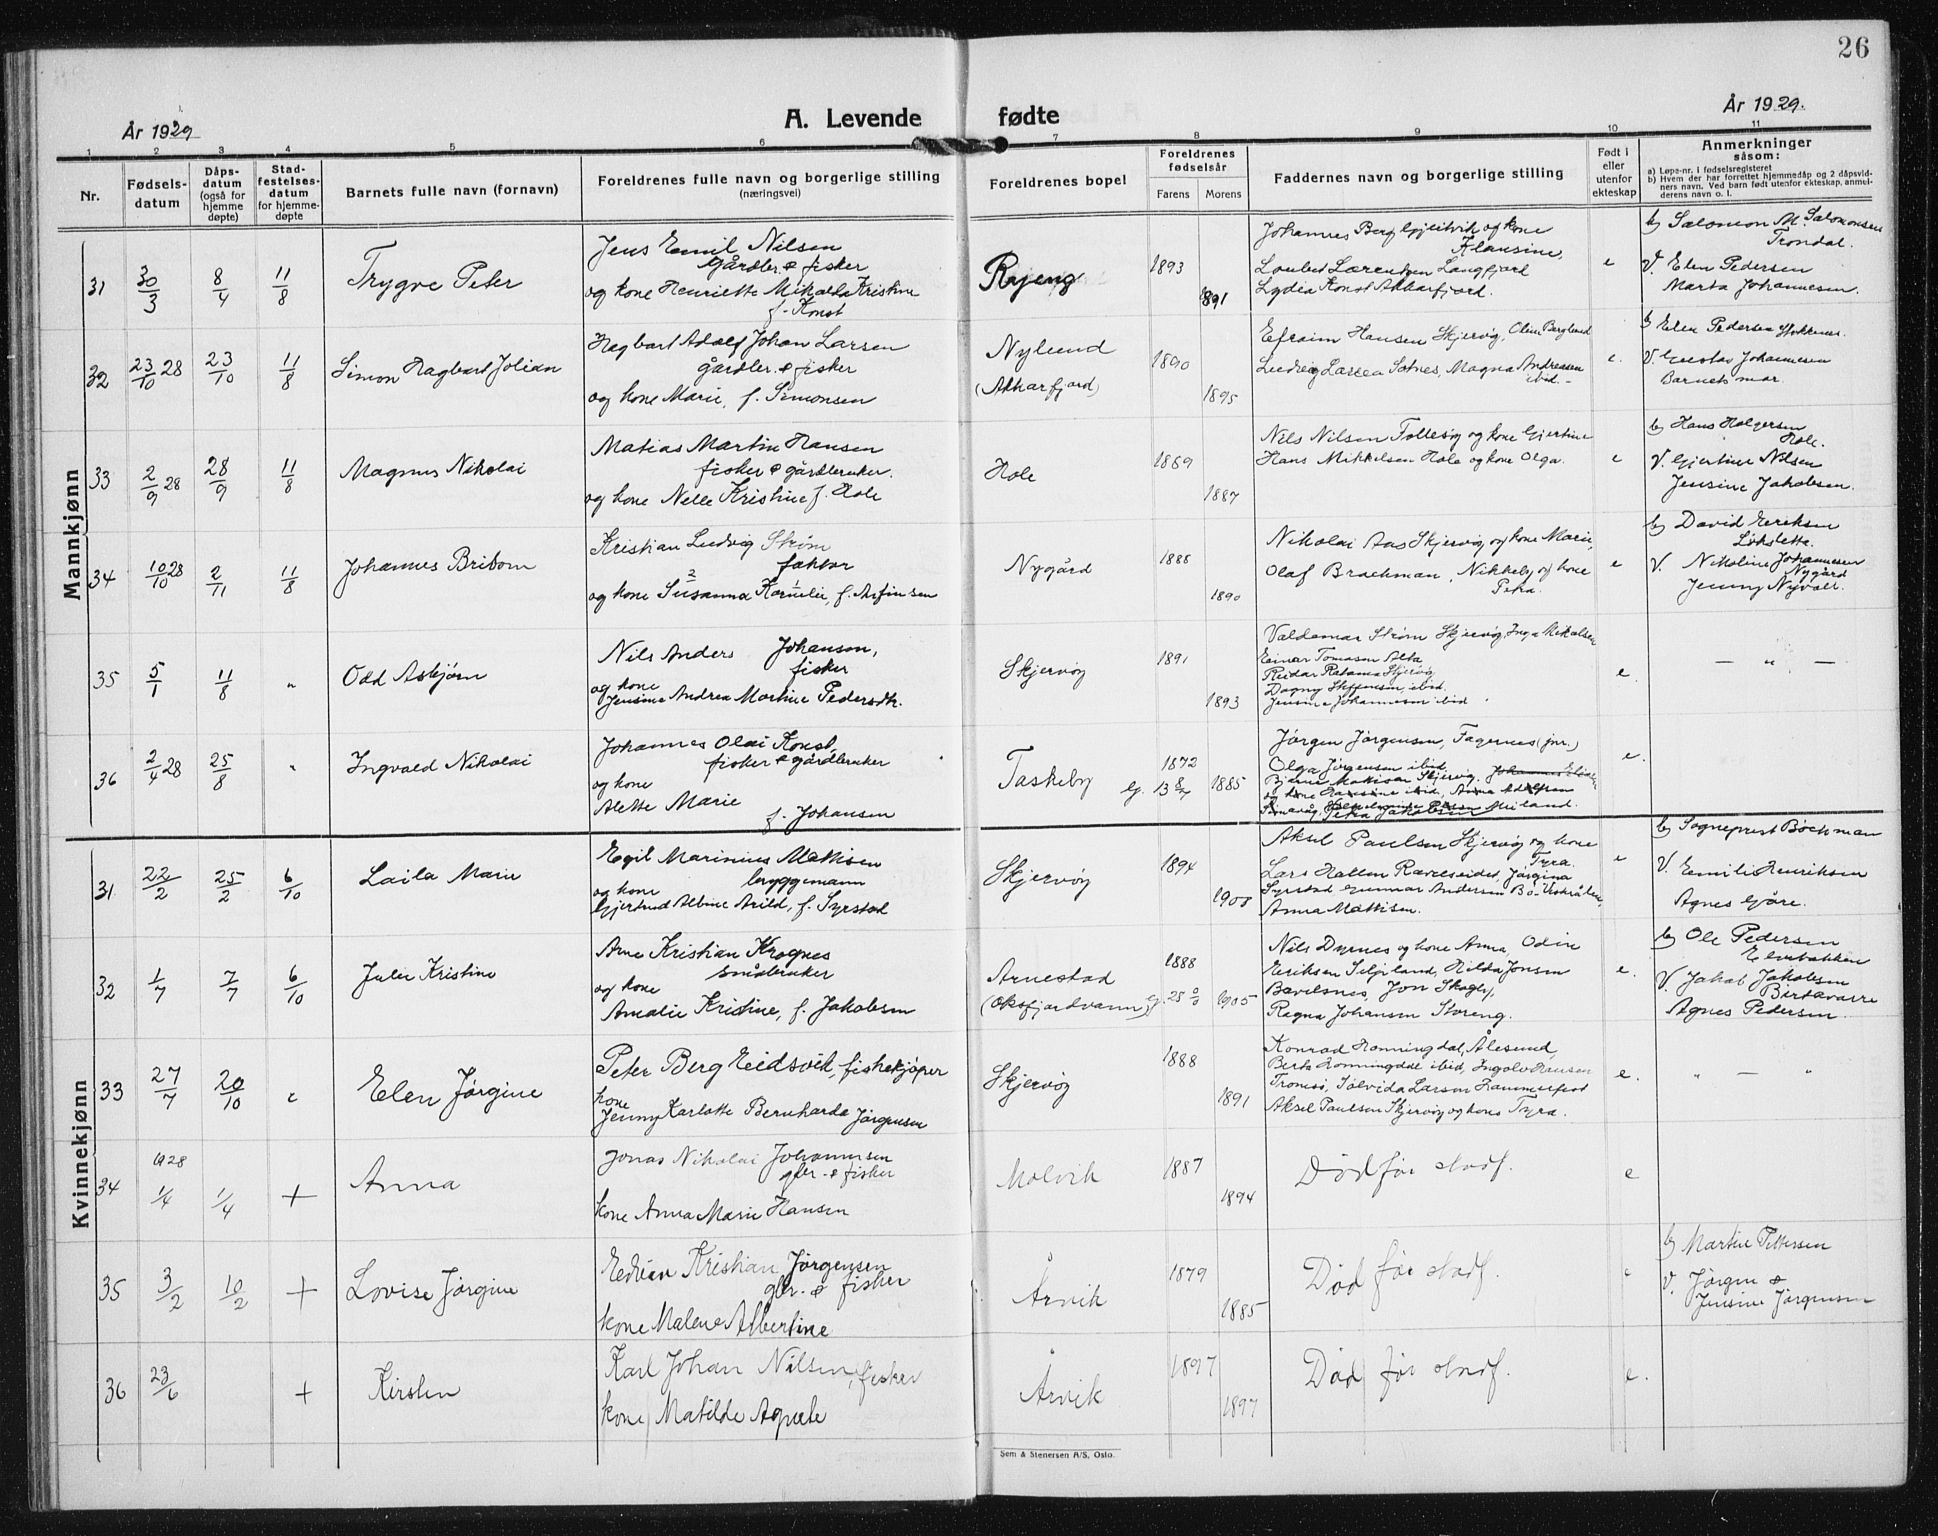 26
År 1929
A. Levende fødte
År 1929.
1 2 3 4 5 6 7 8 9 10 11
Nr.
Fødsels-
datum
Dåps-
datum
(også for
hjemme
døpte)
Stad-
festelses-
datum
for hjemme-
døpte
Barnets fulle navn (fornavn)
Foreldrenes fulle navn og borgerlige stilling
(næringsvei)
Foreldrenes bopel
Foreldrenes
fødselsår
Farens Morens
Faddernes navn og borgerlige stilling
Født i
eller
utenfor
ekteskap
Anmerkninger
såsom:
a) Løpe-nr. i fødselsregisteret
b) Hvem der har forrettet hjemmedåp og 2 dåpsvid-
ners navn. Ved barn født utenfor ekteskap, anmel-
derens navn o. l.
Mannkjønn
31 30/3 8/4 11/8 Trygve Peter
Jens Emil Nilsen
Gårdbr. & fisker
og kone Henriette Mikalda Kristine
f. Konst
1893
1891
Johannes Berg og kone
Klausine,
Lorentsen Langfjord
Lydia Konst Akkarfjord.
e
b) Salomon M. Salomonsen
Trondal.
V. Elen Pedersen
Marta Johannesen.
32 23/10 28 23/10 11/8 Simon Hagbart Jolian
Hagbart Adolf Johan Larsen
gårdbr. & fisker
og kone Marie, f. Simonsen
Nylund
(Akkarfjord)
1890
1895
Efraim Hansen Skjervøy, Oline Berglund
Ludvig Larsen Sotnes, Magna Andreasen
ibid.
e.
b Elen Pedersen Stokkenes
V. Gustav Johannesen
Barnets mor.
33 2/9 28 28/9 11/8 Magnus Nikolai
Matias Martin Hansen
fisker & gårdbruker.
og kone Nelle Kristine f. Hole
Hole
1889
1887
Nils Nilsen Follesøy og kone Gjertine
Hans Mikkelsen Hole og kone Olga.
e
b) Hans Holgersen
Hole.
V. Gjertine Nilsen
Jensine Jakobsen.
34 10/10 28 2/11 11/8 Johannes Bribom
Kristian Ludvig Strøm
faktor
og kone Susanna Kornelie, f. Arfinsen
Nygård
1888
1890
Nikolai Aas Skjervøy og kone Marie,
Olaf Brochman, Nikkeby og kone
Petra.
e
b) David Eriksen
Lökslette.
V. Nikoline Johannesen
Nygård
Jenny Nyvoll.
35 5/1 11/8 „ Odd Asbjørn
Nils Anders Johansen,
fisker
og kone
Jensine Andrea Martine Pedersdtr.
Skjervøy
1891
1893
Valdemar Strøm Skjervøy, Inga Mikalsen
Einar Tomasen Alta
Reidar Skjervøy
Dagny Steffensen, ibid.
Jensine Johannesen ibid
e.
— „ —
36 2/4 28 25/8 „ Ingvald Nikolai
Johannes Olai Konst,
fisker & gårdbruker
og kone
Alette Marie
f. Johansen
Taskeby
1872
g. 13 8/7 1885
Jørgen Jørgensen, Fagernes (jnr.)
Olga Jørgensen ibid.
Bjarne Mattisen Skjervøy.
Petra Jakobsen Meiland.
e.
Kvinnekjønn
31 22/2 25/2 6/10 Laila Marie
Egil Marinius Mattisen
bryggemann
og kone
Gjertrud Albine Arild, f. Syrstad
Skjervøy
1894
Aksel Paulsen Skjervøy og kone
Tyra.
Lars Hallen Raveseidet, Jørgina
Syrstad Gunnar Andersen
Anna Mattisen.
e
b) Sogneprest Bochman
V. Emilie Henriksen
Agnes Gåre.
32 1/7 7/7 6/10 Julie Kristine
Arne Kristian Krognes
småbruker
og kone
Amalie Kristine, f. Jakobsen
Arnestad
(Oksfjordvann)
1888
1905
Nils Dyrnes og kone Anna, Odin
Eriksen Silpiland, Hilda Jensen
Bavelsnes, Jon Skogly,
Ragna Johansen Storeng.
e.
b) Ole Pedersen
Elvebakken
V. Jakob Jakobsen
Birtavarre
Agnes Pedersen.
33 27/7 20/10 Elen Jørgine
Peter Berg Eidsvik, fiskekjøper
kone
Jenny Karlotte Bernharda Jørgensen
Skjervøy
1888
1891
Konrad Honningdal, Ålesund,
Berta Honningdal ibid, Ingolv Hansen
Tromsø, Solvida Larsen Hammerfest
Aksel Paulsen Skjervøy og kone Tyra.
e.
„ — „
34 1928 1/4 1/4 + Anna
Jonas Nikolai Johannesen
gbr. & fisker
kone Anna Marie Hansen
Molvik
1887
1894
Død før stadf.
e
35 3/2 10/2 + Lovise Jørgine
Edvin Kristian Jørgensen
gbr. & fisker
kone Malene Albertine
Årvik
1879
1885
Død før stadf.
e
b) Martin Pettersen
V. Jørgen &
Jensine Jørgensen
36 23/6 + Kirsten
Karl Johan Nilsen, fisker
kone Matilde Agnete
Årvik
1897
1897
Død før stadf.
e.
Sem & Stenersen A/S, Oslo.